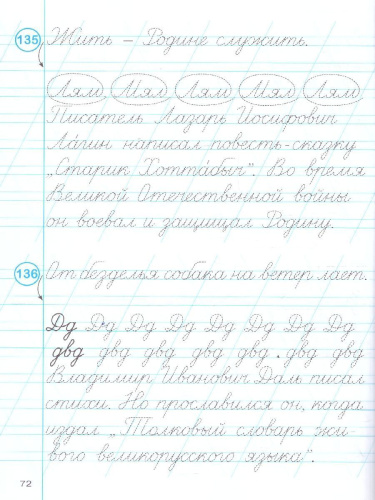 135 Жить – Родине служить.
Лям Мял Лям Мял Лям
Писатель Лазарь Иосифович
Ла́гин написал повесть-сказку
„Старик Хотта́быч". Во время
Великой Отечественной войны
он воевал и защищал Родину.
136 От безделья собака на ветер лает.
Дд Дд Дд Дд Дд Дд Дд Дд
двд двд двд двд двд двд двд
Владимир Иванович Даль писал
стихи. Но прославился он, когда
издал „Толковый словарь жи-
вого великорусского языка".
72